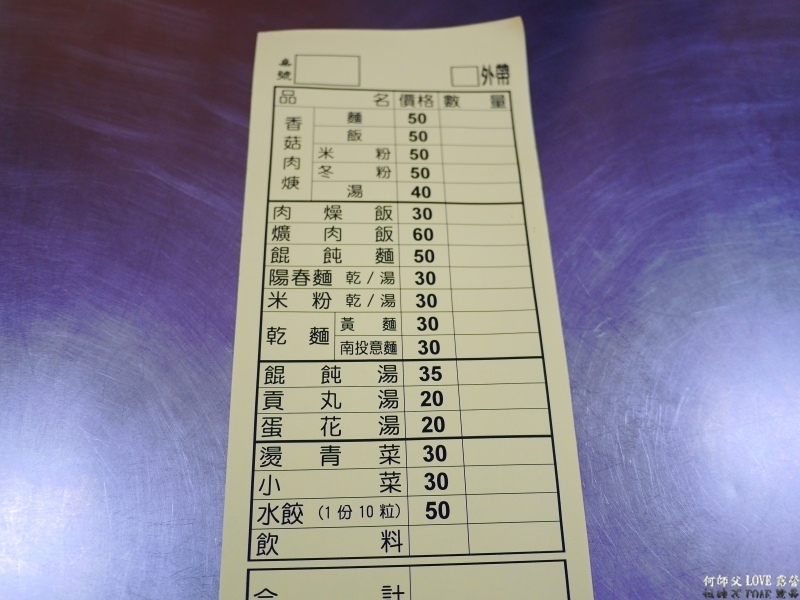 桌號 外帶
品名 價格 數量
香菇肉焿 麵 50
飯 50
米粉 50
冬粉 50
湯 40
肉燥飯 30
爌肉飯 60
餛飩麵 50
陽春麵 乾/湯 30
米粉 乾/湯 30
乾麵 黃麵 30
南投意麵 30
餛飩湯 35
貢丸湯 20
蛋花湯 20
燙青菜 30
小菜 30
水餃 (1份10粒) 50
飲料
合計
何師父 LOVE 露營